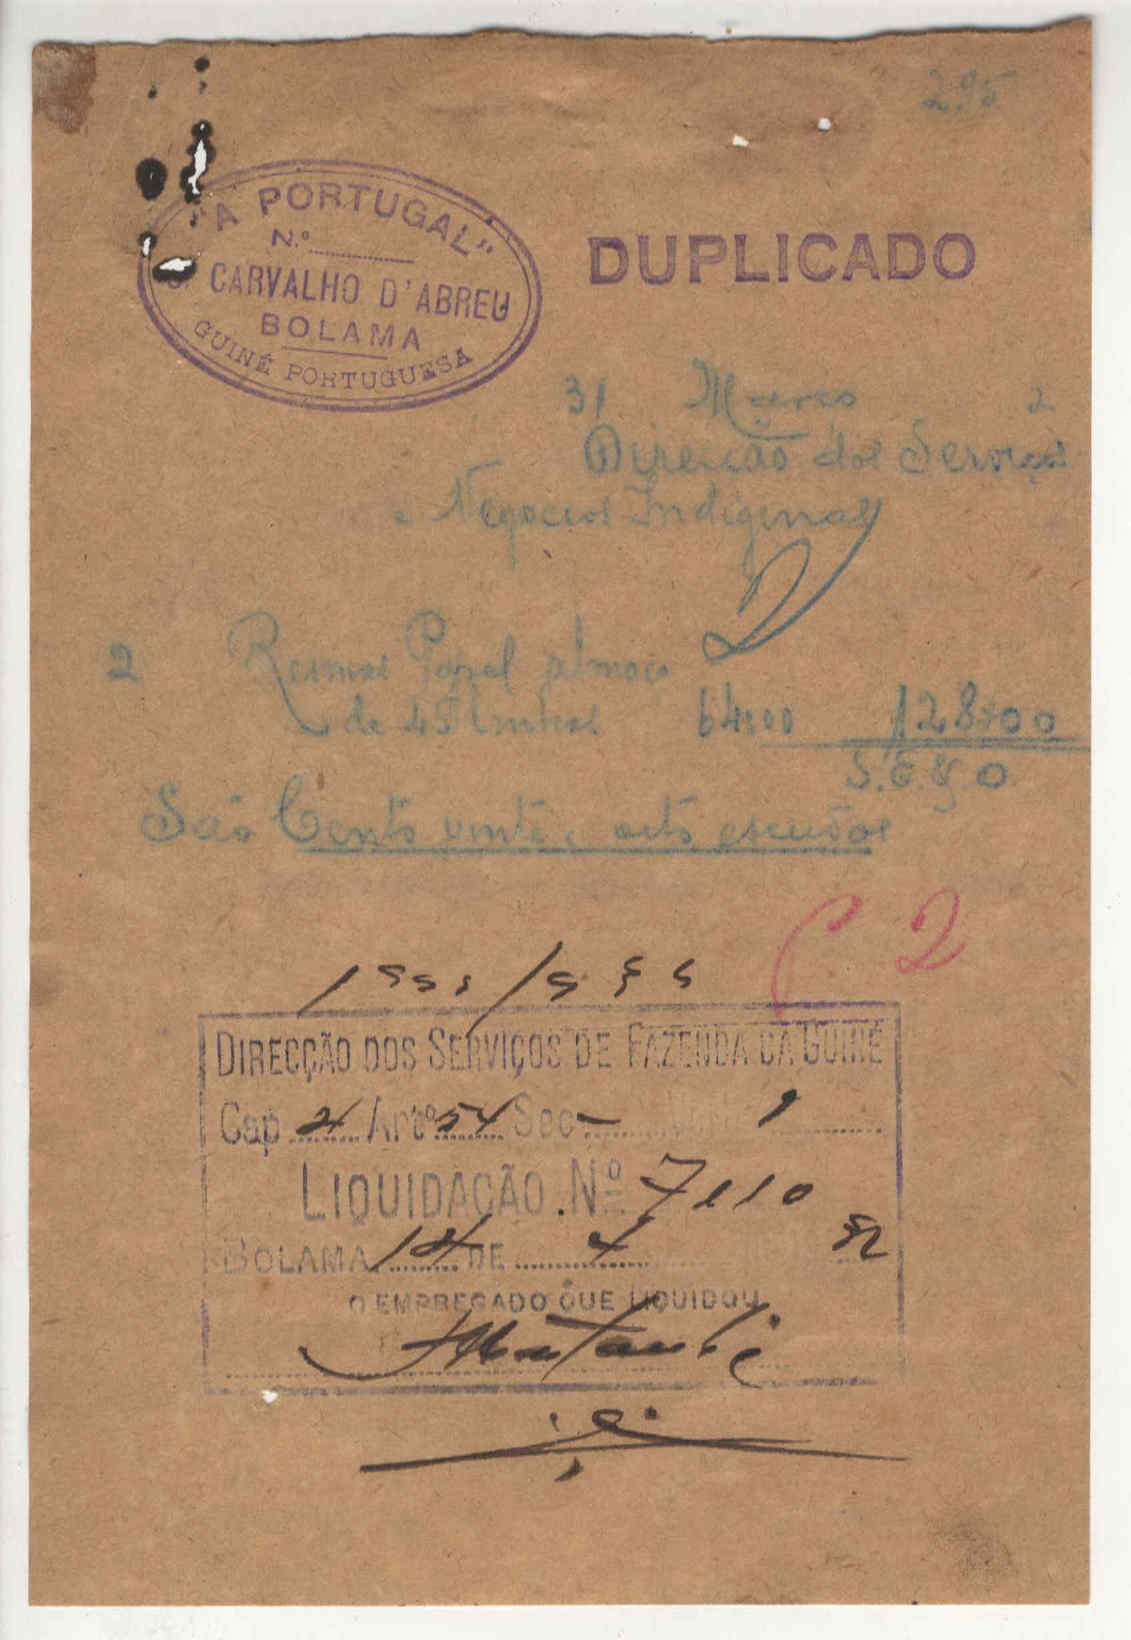 295
"A PORTUGAL"
N.º
CARVALHO D'ABREU
BOLAMA
GUINÉ PORTUGUESA
DUPLICADO
31 Março 2
Direcção dos Serviços
e Negocios Indigenas
2 Resmas Papel almaço
de 45 linhas 64$00 128$00
S.E.&O
São Cento vinte e oito escudos
C 2
DIRECÇÃO DOS SERVIÇOS DE FAZENDA DA GUINÉ
Cap 4 Artº 54 Sec -
LIQUIDAÇÃO Nº 7110
BOLAMA, 14 DE 4
O EMPREGADO QUE LIQUIDOU